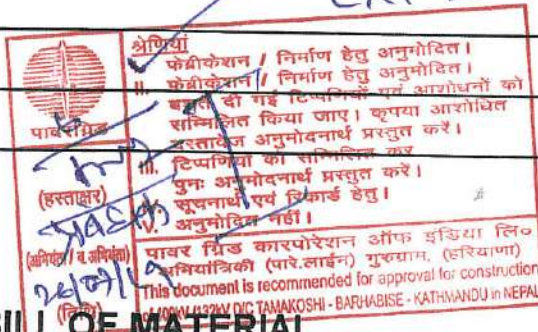 श्रेणियां
फेब्रीकेशन / निर्माण हेतु अनुमोदित।
II. फेब्रीकेशन / निर्माण हेतु अनुमोदित।
बशर्ते दी गई टिप्पणियों एवं आशोधनों को
सम्मिलित किया जाए। कृपया आशोधित
दस्तावेज अनुमोदनार्थ प्रस्तुत करें।
III. टिप्पणियों को सम्मिलित कर
पुनः अनुमोदनार्थ प्रस्तुत करें।
सूचनार्थ एवं रिकार्ड हेतु।
V. अनुमोदित नहीं।
पावरग्रिड
(हस्ताक्षर)
(अभियंता / व. अभियंता)
(तिथि)
पावर ग्रिड कारपोरेशन ऑफ इंडिया लि०
अभियांत्रिकी (पारे.लाईन) गुरुग्राम, (हरियाणा)
This document is recommended for approval for construction
of 400kV/132kV D/C TAMAKOSHI - BARHABISE - KATHMANDU in NEPAL
BILL OF MATERIAL